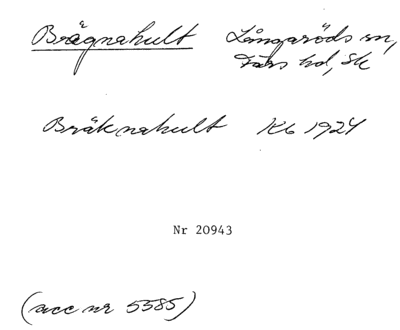 Brägnahult Långaröds sn,
Färs hd, Sk
Bräknahult Kb 1924
Nr 20943
(acc nr 5585)